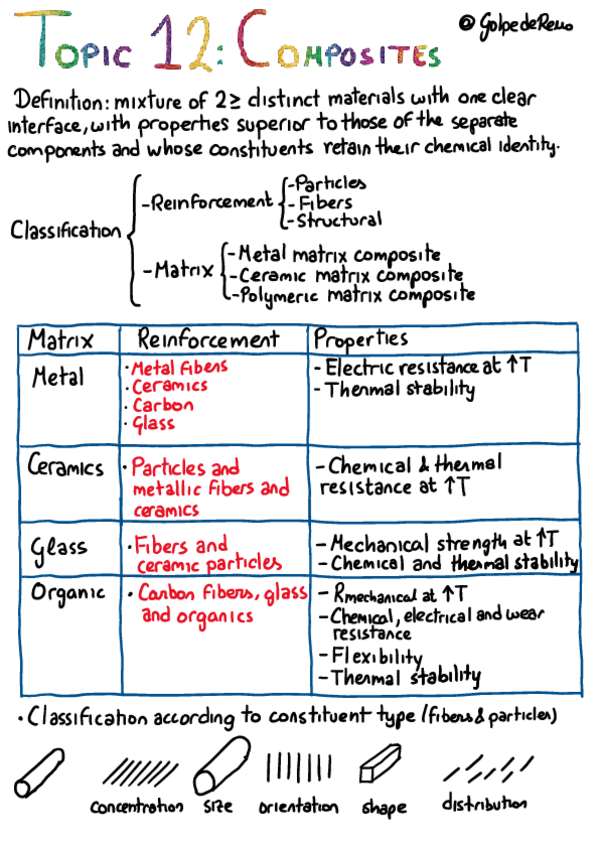 Topic 12: Composites
@GolpedeRemo
Definition: mixture of 2≥ distinct materials with one clear
interface, with properties superior to those of the separate
components and whose constituents retain their chemical identity.
Classification
-Reinforcement
-Particles
-Fibers
-Structural
-Matrix
-Metal matrix composite
-Ceramic matrix composite
-Polymeric matrix composite
Matrix Reinforcement Properties
Metal
·Metal Fibers
·Ceramics
·Carbon
·Glass
- Electric resistance at ↑T
- Thermal stability
Ceramics
· Particles and
metallic fibers and
ceramics
- Chemical & thermal
resistance at ↑T
Glass
· Fibers and
ceramic particles
- Mechanical strength at ↑T
- Chemical and thermal stability
Organic
· Carbon Fibers, glass
and organics
- Rmechanical at ↑T
- Chemical, electrical and wear
resistance
- Flexibility
- Thermal stability
· Classification according to constituent type (fibers & particles)
concentration size orientation shape distribution